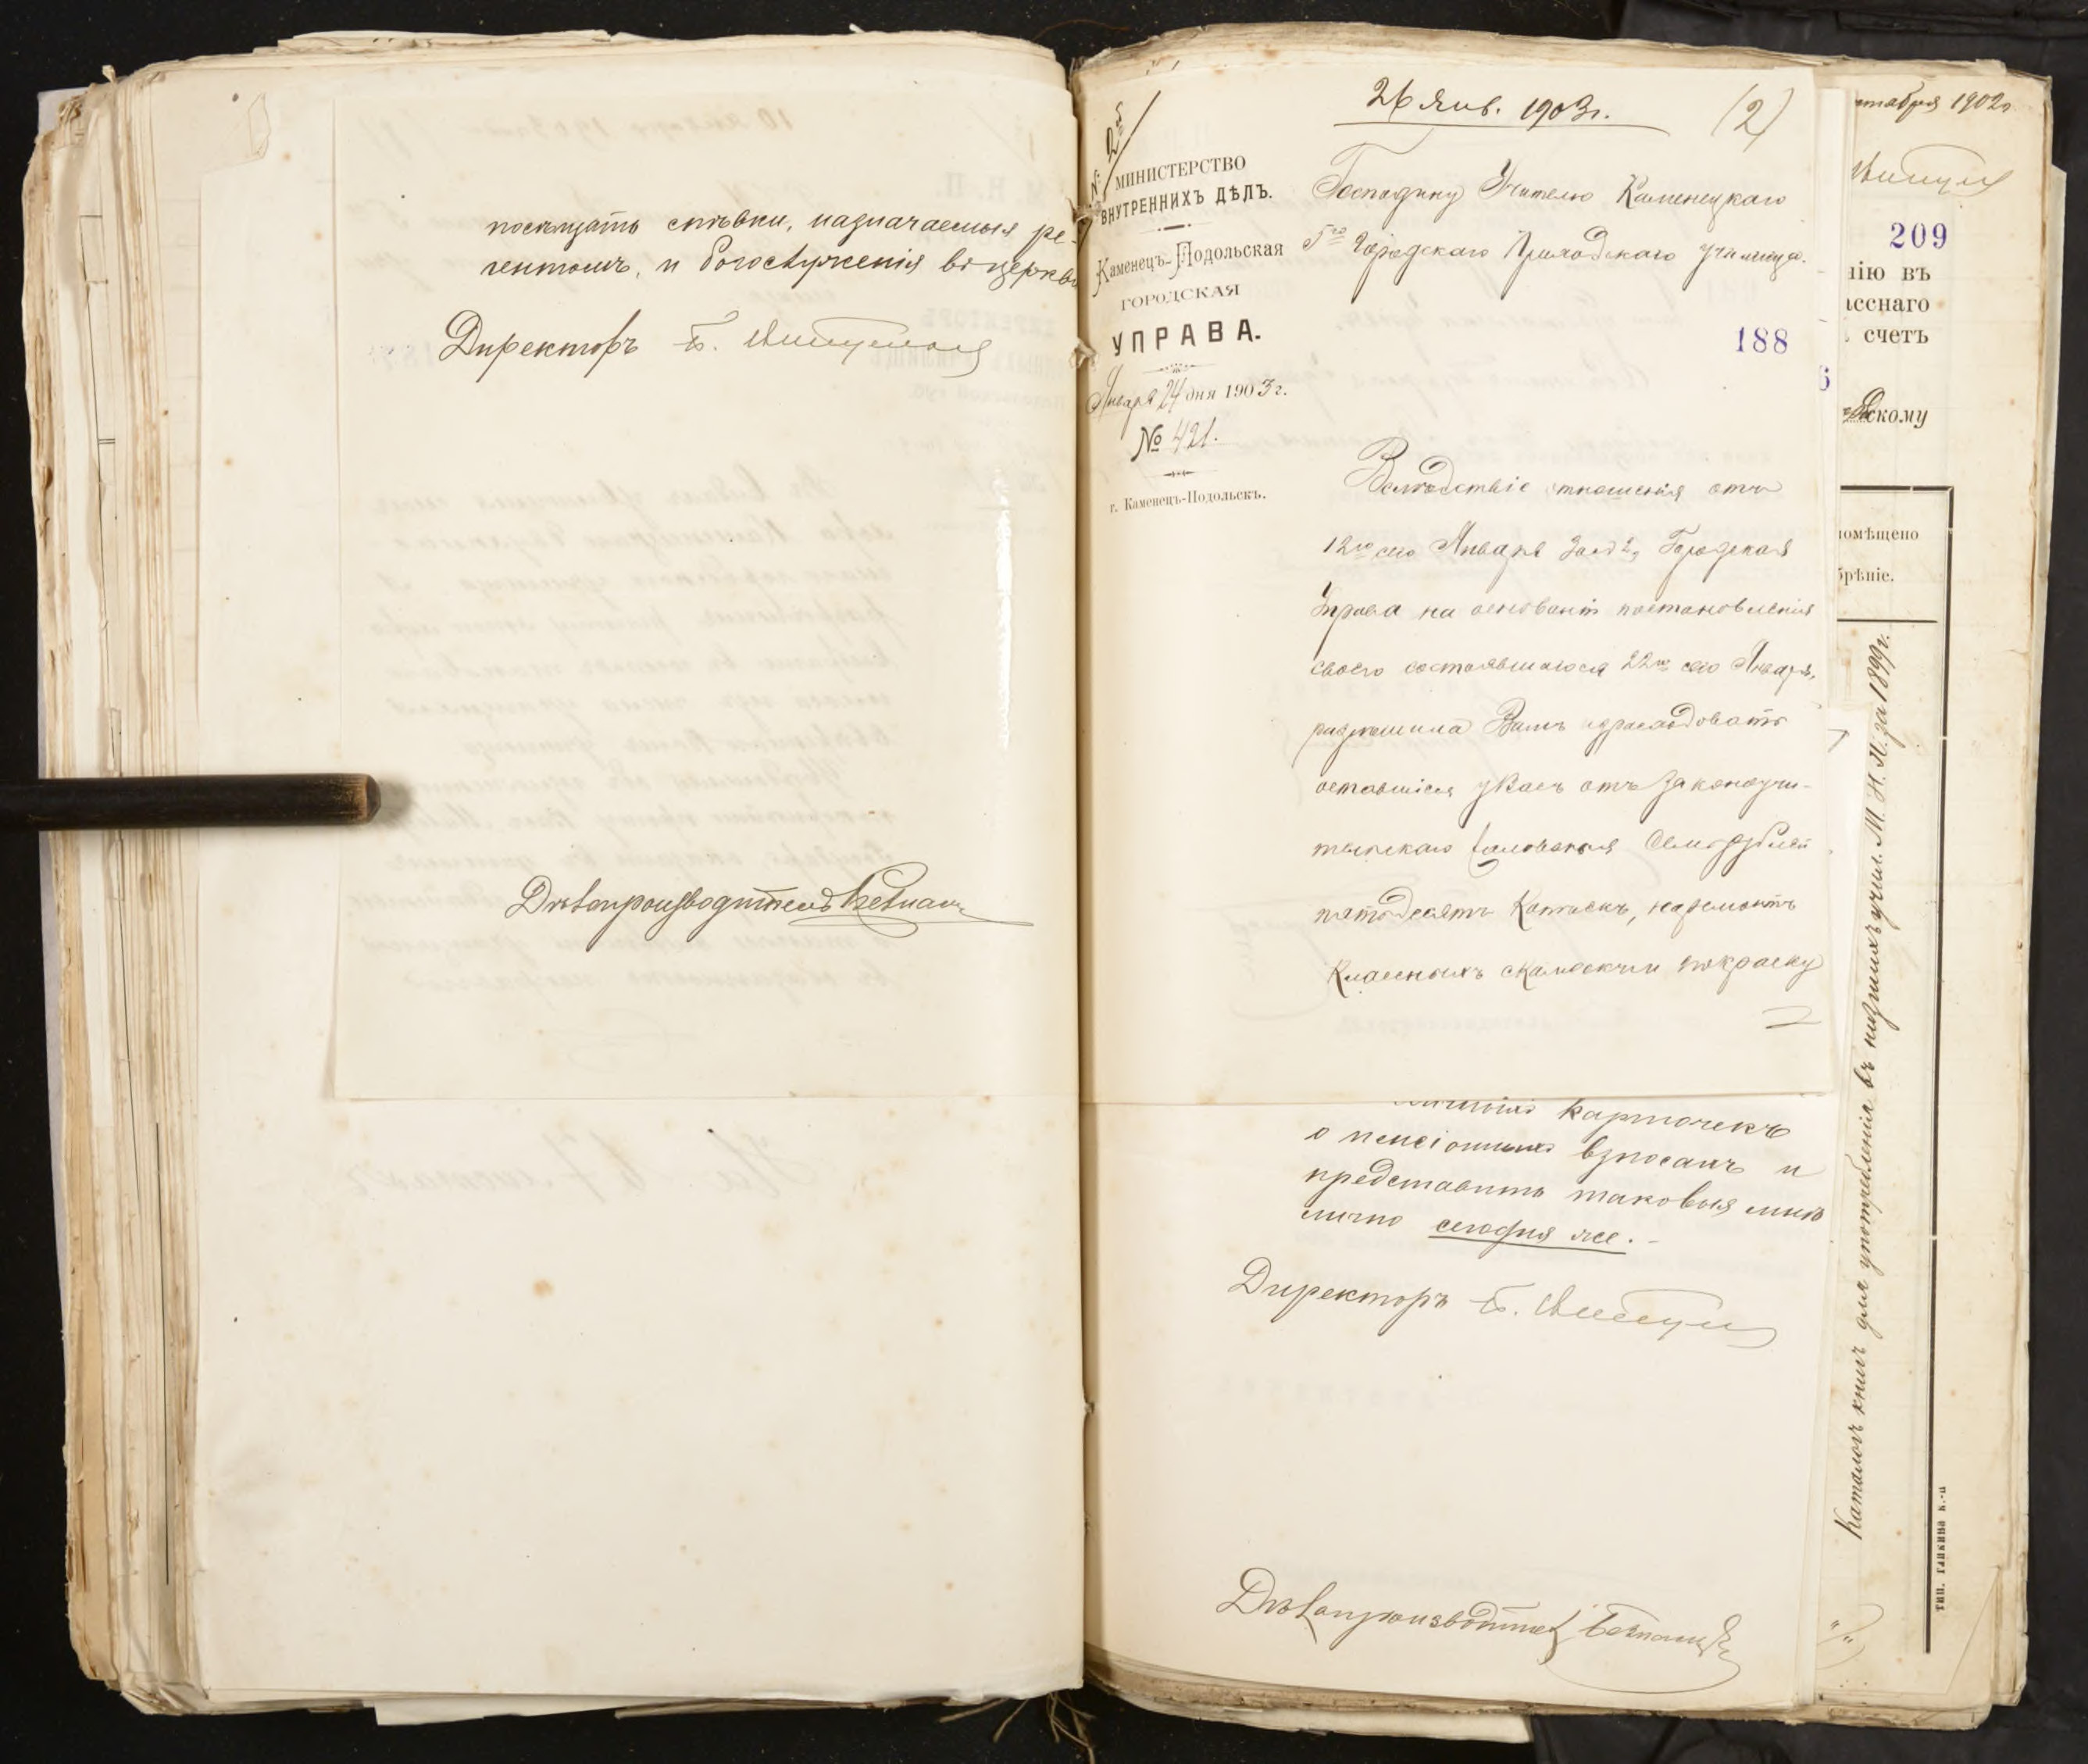 посѣщать спѣвки, назначаемыя ре-
гентомъ, и богослуженія въ церкви
Директоръ
Дѣлопроизводитель
26 Янв. 1903 г.
(2)
МИНИСТЕРСТВО
ВНУТРЕННИХЪ ДѢЛЪ.
Каменецъ-Подольская
ГОРОДСКАЯ
УПРАВА.
Января 24 дня 1903 г.
№ 421.
г. Каменецъ-Подольскъ.
Господину Учителю Каменецкаго
Городскаго Приходскаго училища.
188
Вслѣдствіе отношенія отъ
12го сего Января за № 2, Городская
Управа на основаніи постановленія
своего состоявшагося 22го сего Января,
разрѣшила Вамъ израсходовать
оставшіеся у Васъ отъ законоучи-
тельскаго жалованья семь рублей
пятьдесятъ копѣекъ, на ремонтъ
классныхъ скамеекъ и покраску
карточекъ
о пенсіонныхъ взносахъ и
представить таковыя мнѣ
лично сегодня же.
Директоръ
Дѣлопроизводитель
тября 1902 г.
209
нію въ
асснаго
счетъ
скому
помѣщено
брѣніе.
Каталогъ книгъ для употребленія въ низшихъ учил. М. Н. П. за 1899 г.
тип. Ганкина К.-П